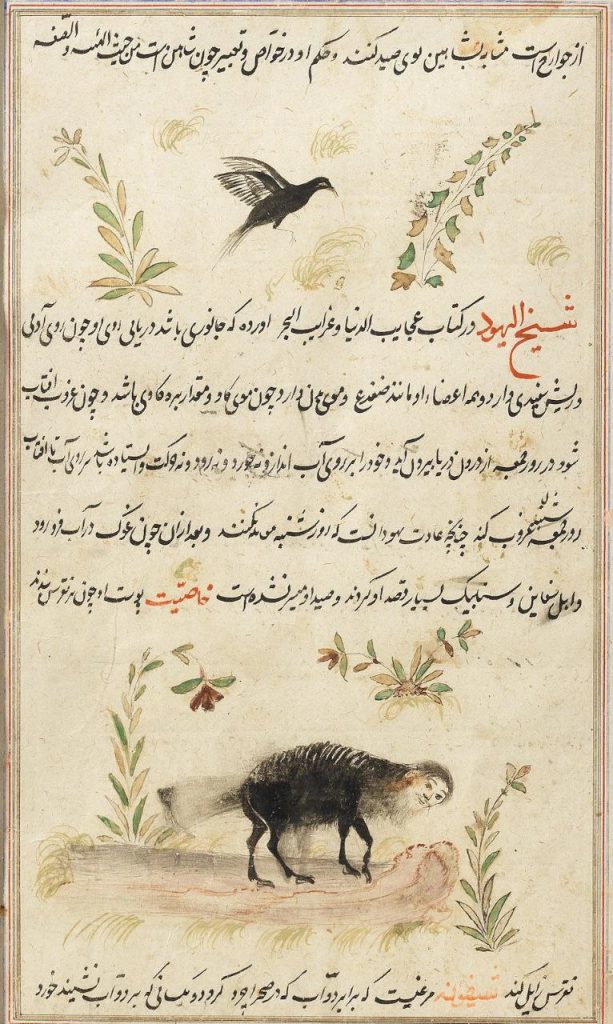 از جوارح است مشابه بشاهین بوی صید کنند و حکم او در خواص و تعبیر چون شاهین است من حیث اللغه والصفه
شیخ الیهود در کتاب عجایب الدنیا و غرایب البحر اورده که جانوری باشد دریایی روی او چون روی آدمی
و ریش سفیدی دارد و همه اعضاء او مانند ضفدع و موی بدن دارد چون موی کاو و مقدار بره کاوی باشد و چون غروب افتاب
شود در روز جمعه از درون دریا بیرون آید و خود را بر روی آب اندازد و نه خورد و نه رود و نه حرکت و ایستاده باشد بر روی آب تا افتاب
روز شنبه غروب کند چنانچه عادت یهود انست که روز شنبه صید نکنند و بعد از ان چون غوک در آب فرو رود
و اهل سفاین و سنابیک بسیار قصد او کردند و صید او میسر نشده است خاصیت پوست او چون بر نقرس بندند
نقرس زایل کند شیفونه مرغیست که برابر دوآب که در صحرا چرد کردد و مکسانی که بر دوآب نشینند خورد